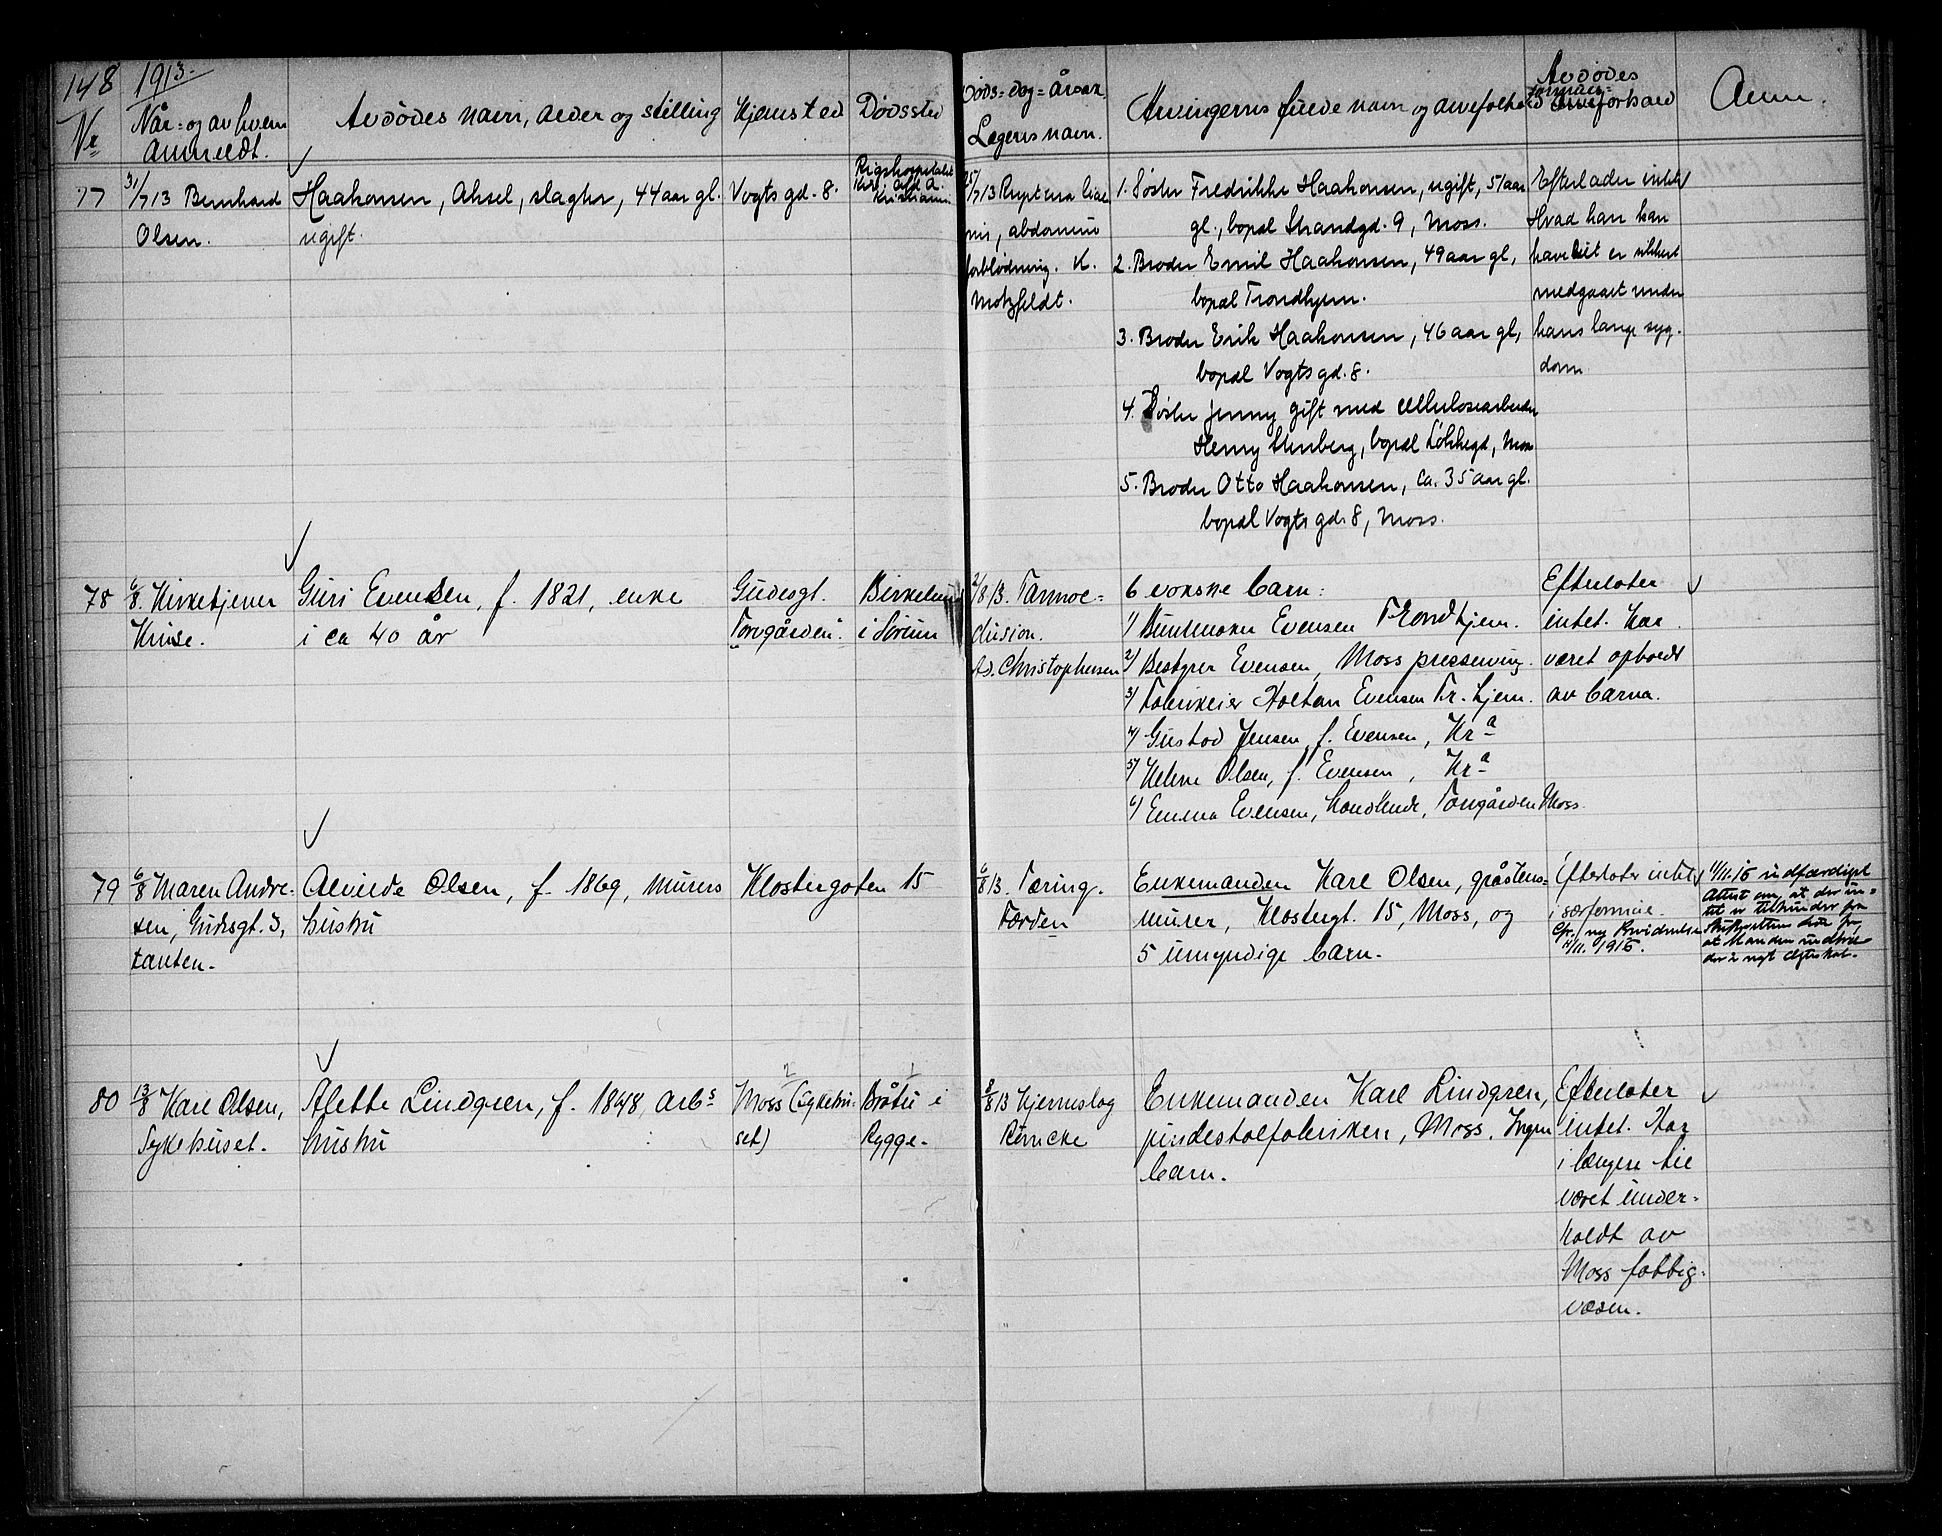 148 1913.
Nr Når- og av hvem anmeldt.
Avdödes navn, alder og stilling
Hjemsted
Dödssted
Döds-dag-årsak. Legens navn.
Arvingernes fulde navn og arveforhold
Avdödes formues forhold
Anm.
77
31/7 13 Bernhard
Olsen.
Haakonsen, Aksel, slagter, 44 aar gl.
ugift.
Vogts gd. 8.
Rigshospitalet
Kir. afd. A.
Kristiania
25/7 13 Ruptura
abdomino
forblödning. K.
Motzfeldt.
1. Søster Fredrikke Haakonsen, ugift, 51 aar
gl., bopæl Strandgd. 9, Moss.
2. Broder Emil Haakonsen, 49 aar gl,
bopæl Trondhjem.
3. Broder Erik Haakonsen, 46 aar gl,
bopæl Vogts gd. 8.
4. Søster Jenny gift med cellulosearbeider
Henry Stenberg, bopæl Løkkegd, Moss
5. Broder Otto Haakonsen, ca. 35 aar gl.
bopæl Vogts gd. 8, Moss.
Efterlader intet
Hvad han kan
have eiet er sikkert
medgaaet under
hans lange syg-
dom
78
6/8. Kirketjener
Guri Evensen, f. 1821, enke
i ca 40 år
Gudesgt.
"Torvgården".
Birkelund
i Sörum
2/8 13. Tarmoc-
clusion.
Ad. Christophersen
6 voksne barn:
1) Buntmaker Evensen Trondhjem.
2) Bestyrer Evensen, Moss pressening.
3) Fabrikeier Holtan Evensen Tr.hjem.
4) Gustav Jensen, f. Evensen, Kra
5) Helene Olsen, f. Evensen, Kra
6) Emma Evensen, handlende, Torvgården Moss.
Efterlater
intet. Har
været opholdt
av barna.
79
6/8 Maren Andre-
sen, Gudesgt. 3,
tanten.
Alvilde Olsen, f. 1869, murers
hustru
Klostergaten 15
6/8 13. Tæring.
Færden
Enkemanden Karl Olsen, gråstens-
murer, Klostergt. 15, Moss, og
5 umyndige barn.
Efterlater intet
i særformue.
Cfr. ny
11/11. 1915.
11/11. 15 utfærdiget
Attest om, at der in-
tet er tilhinder fra
skifterettens side for,
at Manden indtræ-
der i nyt Ægteskab.
80
13/8 Karl Olsen,
Sykehuset.
Alette Lindgren, f. 1848, arbs
hustru
Moss (sykehu-
set)
Bråten i
Rygge.
8/8 13 Hjerneslag
Rømcke
Enkemanden Karl Lindgren,
pindestolfabriken, Moss. Ingen
barn.
Efterlater
intet. Har
i længere tid
været under-
holdt av
Moss fattig-
væsen.